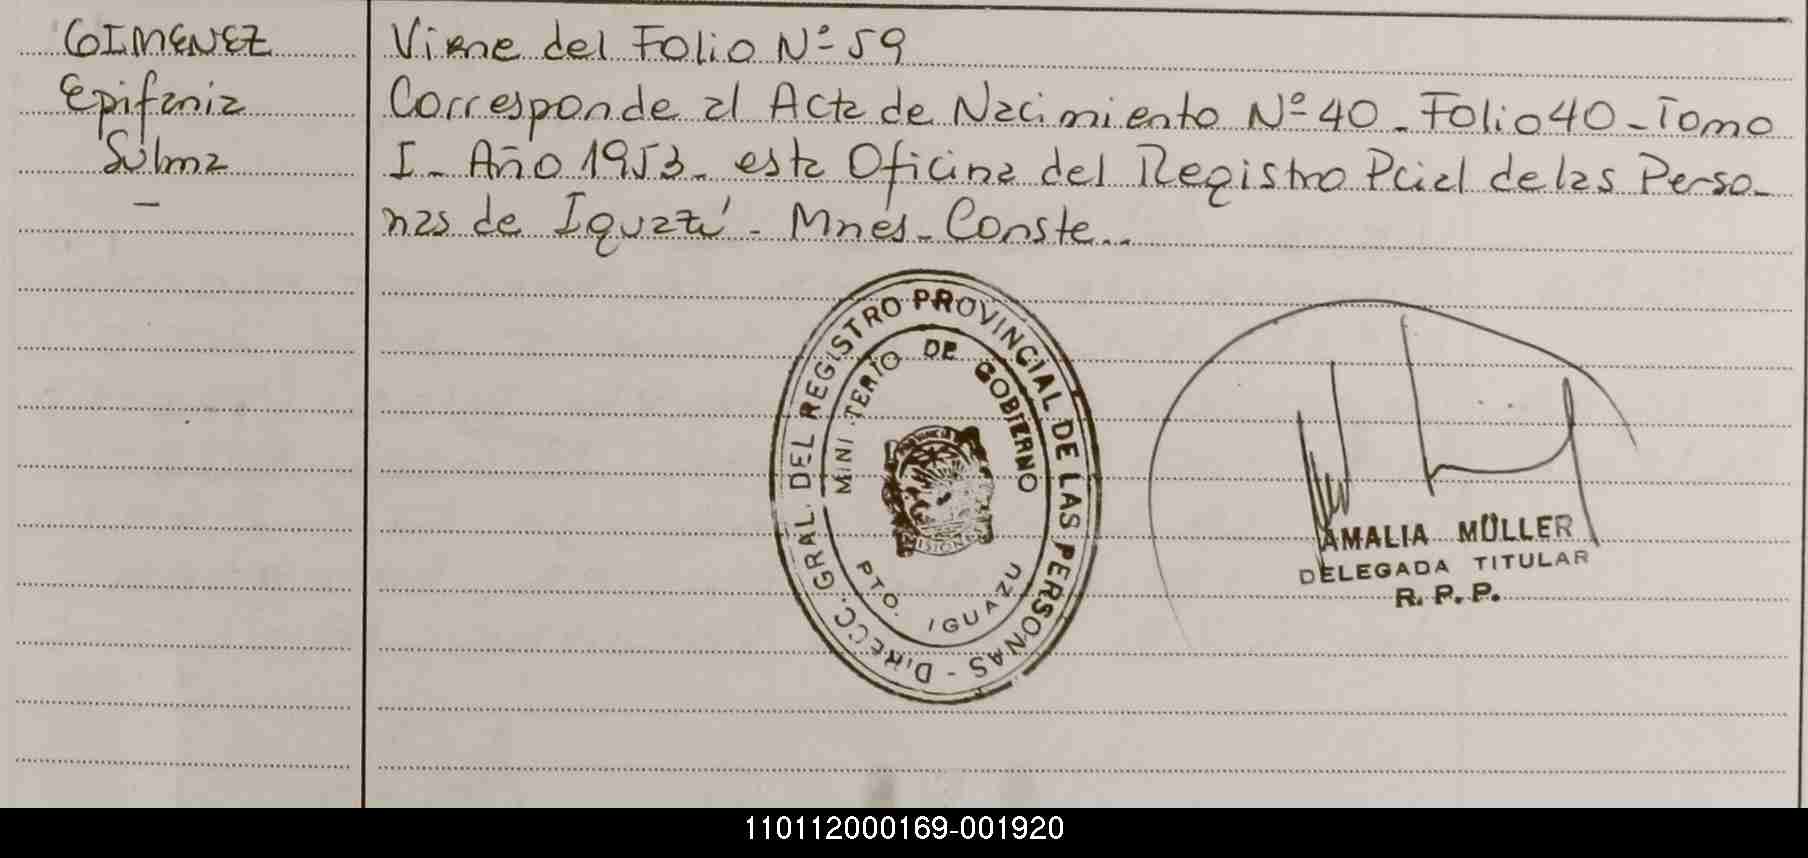 GIMENEZ
Epifania
Sulma
–
Viene del Folio Nº 59
Corresponde al Acta de Nacimiento Nº 40 - Folio 40 - Tomo
I - Año 1953 - esta Oficina del Registro Pcial de las Perso-
nas de Iguazú - Mnes - Conste..
DIRECC. GRAL. DEL REGISTRO PROVINCIAL DE LAS PERSONAS -
MINI TERIO DE GOBIERNO
PTO. IGUAZU
AMALIA MÜLLER
DELEGADA TITULAR
R. P. P.
110112000169-001920